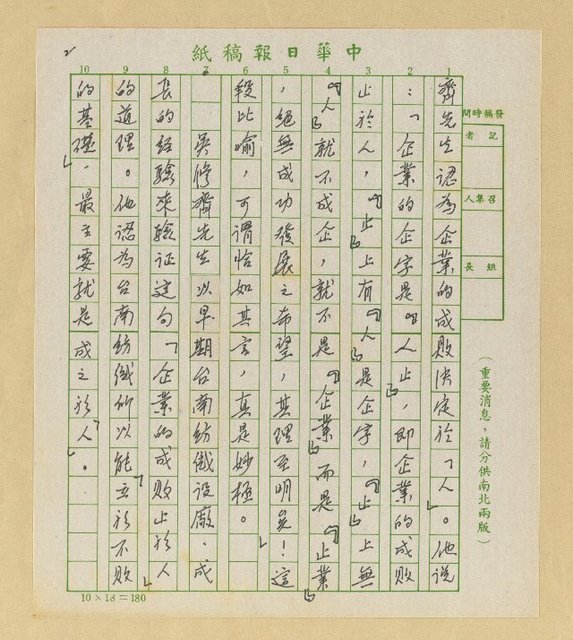 中華日報稿紙
2
1 2 3 4 5 6 7 8 9 10
發稿時間
記者
召集人
組長
（重要消息，請分供南北兩版）
齊先生認為企業的成敗決定於「人」。他說
：「企業的企字是『人止』，即企業的成敗
止於人，『止』上有『人』是企字，『止』上無
『人』就不成企，就不是『企業』而是『止業』
，絕無成功發展之希望，其理至明矣！」這
段比喻，可謂恰如其言，真是妙極。
吳修齊先生以早期台南紡織設廠、成
長的經驗來驗證這句「企業的成敗止於人」
的道理。他認為台南紡織所以能立於「不敗
的基礎」，最主要就是成之於「人」。
10×18＝180